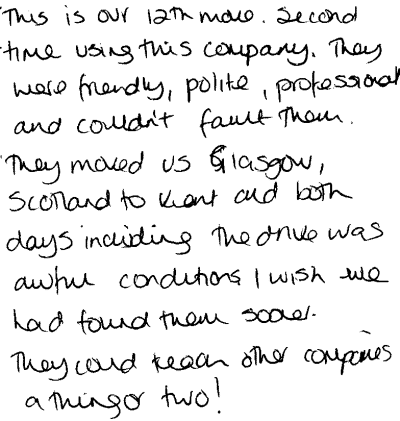 This is our 12th move. Second
time using this company. They
were friendly, polite, professional
and couldn't fault them.
They moved us Glasgow,
Scotland to Kent and both
days including the drive was
awful conditions I wish we
had found them sooner.
They could teach other companies
a thing or two!